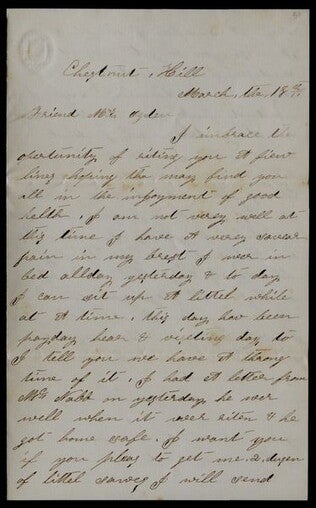 Chestnut, Hill
March, the, 18
Friend Mr. Ogden
I imbrace the
oportunity of riting you A fiew
lines hoping tha may find you
all in the injoyment of good
helth, I am not verey well at
this time I have A verey savear
pain in my brest I wer in
bed allday yesterday & to day
I can sit up A littel while
at A time, this day hav been
payday hear & viseting day to
I tell you we have A throng
time of it, I had A letter from
Mr Nabb on yesterday he wer
well when it wer riten & he
got home safe, I want you
if you pleas to get me 2 dozen
of littel I will send